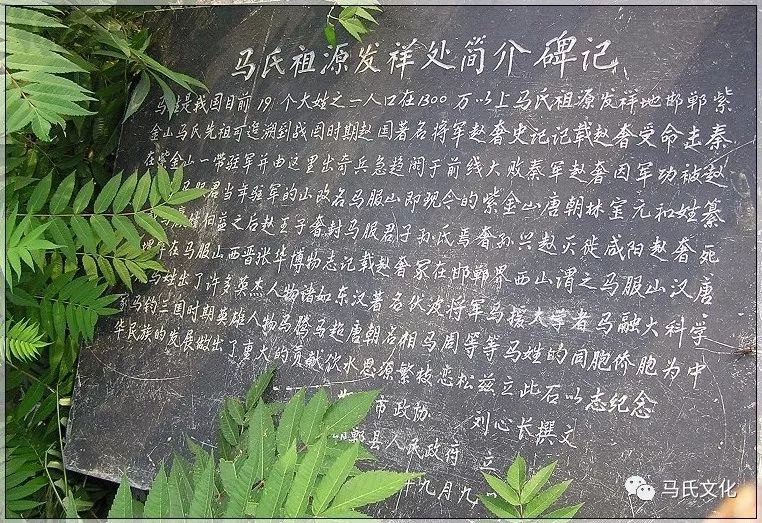 马氏祖源发祥处简介碑记
马姓是我国目前19个大姓之一人口在1300万以上马氏祖源发祥地邯郸紫
金山马氏先祖可追溯到战国时期赵国著名将军赵奢史记记载赵奢受命击秦
在紫金山一带驻军并由这里出奇兵急趋阏于前线大败秦军赵奢因军功被赵
马服君当年驻军的山改名马服山即现今的紫金山唐朝林宝元和姓纂
伯益之后赵王子奢封马服君子孙氏焉奢孙兴赵灭徙咸阳赵奢死
在马服山西晋张华博物志记载赵奢冢在邯郸界西山谓之马服山汉唐
马姓出了许多英杰人物诸如东汉著名伏波将军马援大学者马融大科学
家马钧三国时期英雄人物马腾马超唐朝名相马周等等马姓的同胞侨胞为中
华民族的发展做出了重大的贡献饮水思源繁枝恋松兹立此石以志纪念
市政协 刘心长撰文
郸县人民政府 立
年九月九
马氏文化